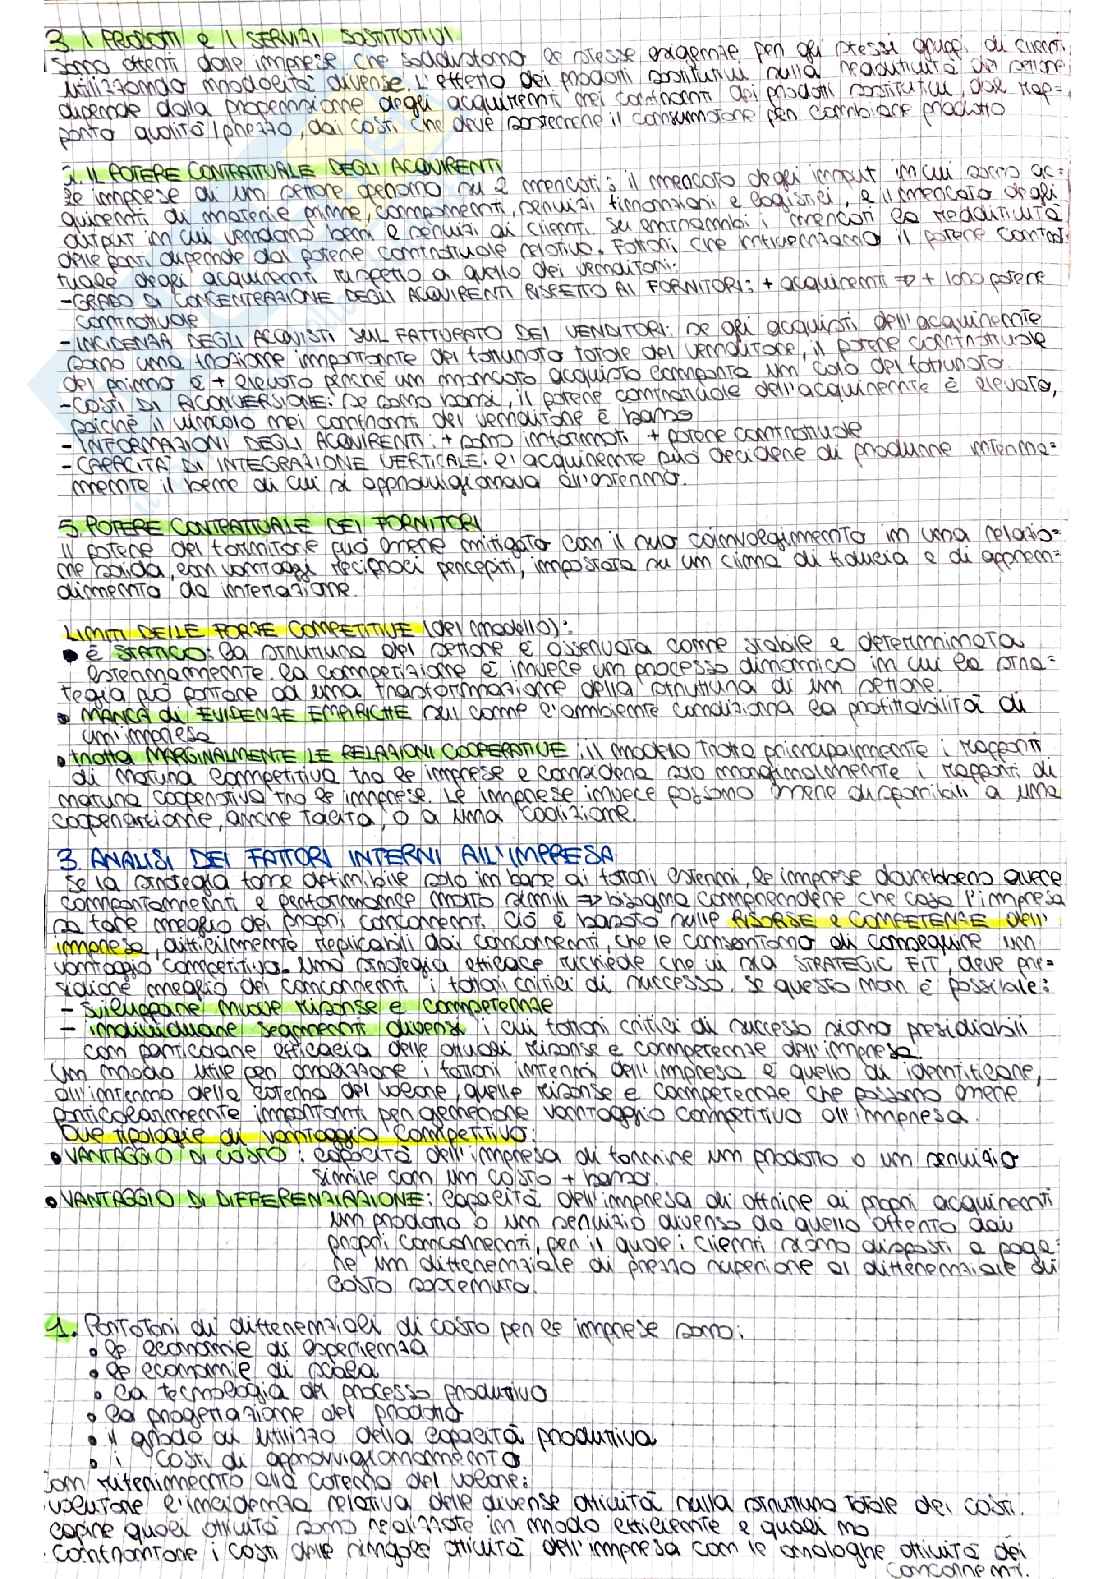 3. I PRODOTTI e I SERVIZI SOSTITUTIVI
Sono offerti dalle imprese che soddisfano le stesse esigenze per gli stessi gruppi di clienti,
utilizzando modalità diverse. L'effetto dei prodotti sostitutivi sulla redditività del settore
dipende dalla propensione degli acquirenti nei confronti dei prodotti sostitutivi, dal rap=
porto qualità/prezzo, dai costi che deve sostenere il consumatore per cambiare prodotto
IL POTERE CONTRATTUALE DEGLI ACQUIRENTI
Le imprese di un settore operano su 2 mercati: il mercato degli input in cui sono ac=
quirenti di materie prime, componenti, servizi finanziari e logistici, e il mercato degli
output in cui vendono beni e servizi ai clienti. Su entrambi i mercati la redditività
delle parti dipende dal potere contrattuale relativo. Fattori che influenzano il potere contrat=
tuale degli acquirenti rispetto a quello dei venditori:
-GRADO DI CONCENTRAZIONE DEGLI ACQUIRENTI RISPETTO AI FORNITORI: + acquirenti => + loro potere
contrattuale
-INCIDENZA DEGLI ACQUISTI SUL FATTURATO DEI VENDITORI: se gli acquisti dell'acquirente
sono una frazione importante del fatturato totale del venditore, il potere contrattuale
del primo è + elevato perché un mancato acquisto comporta un calo del fatturato.
-COSTI DI RICONVERSIONE: se sono bassi, il potere contrattuale dell'acquirente è elevato,
poiché il vincolo nei confronti del venditore è basso
-INFORMAZIONI DEGLI ACQUIRENTI: + sono informati + potere contrattuale
-CAPACITÀ DI INTEGRAZIONE VERTICALE: l'acquirente può decidere di produrre interna=
mente il bene di cui si approvvigionava all'esterno.
5. POTERE CONTRATTUALE DEI FORNITORI
Il potere del fornitore può essere mitigato con il suo coinvolgimento in una relazio=
ne solida, con vantaggi reciproci percepiti, impostata su un clima di fiducia e di appren=
dimento da interazione.
LIMITI DELLE FORZE COMPETITIVE (del modello):
• è STATICO: la struttura del settore è osservata come stabile e determinata
esternamente. La competizione è invece un processo dinamico in cui la stra=
tegia può portare ad una trasformazione della struttura di un settore.
• MANCA di EVIDENZE EMPIRICHE sul come l'ambiente condiziona la profittabilità di
un'impresa
• tratta MARGINALMENTE LE RELAZIONI COOPERATIVE: il modello tratta principalmente i rapporti
di natura competitiva tra le imprese e considera solo marginalmente i rapporti di
natura cooperativa tra le imprese. Le imprese invece possono essere disponibili a una
cooperazione, anche tacita, o a una coalizione.
3. ANALISI DEI FATTORI INTERNI ALL'IMPRESA
Se la strategia fosse definibile solo in base ai fattori esterni, le imprese dovrebbero avere
comportamenti e performance molto simili => bisogna comprendere che cosa l'impresa
sa fare meglio dei propri concorrenti. Ciò è basato sulle RISORSE e COMPETENZE dell'
impresa, difficilmente replicabili dai concorrenti, che le consentono di conseguire un
vantaggio competitivo. Una strategia efficace richiede che vi sia STRATEGIC FIT, deve pre=
sidiare meglio dei concorrenti i fattori critici di successo. Se questo non è possibile:
- sviluppare nuove risorse e competenze
- individuare segmenti diversi i cui fattori critici di successo siano presidiabili
con particolare efficacia dalle attuali risorse e competenze dell'impresa.
Un modo utile per analizzare i fattori interni dell'impresa è quello di identificare,
all'interno della catena del valore, quelle risorse e competenze che possono essere
particolarmente importanti per generare vantaggio competitivo all'impresa.
Due tipologie di vantaggio competitivo:
• VANTAGGIO DI COSTO: capacità dell'impresa di fornire un prodotto o un servizio
simile con un costo + basso.
• VANTAGGIO DI DIFFERENZIAZIONE: capacità dell'impresa di offrire ai propri acquirenti
un prodotto o un servizio diverso da quello offerto dai
propri concorrenti, per il quale i clienti siano disposti a paga=
re un differenziale di prezzo superiore al differenziale di
costo sostenuto.
1. Portatori di differenziali di costo per le imprese sono:
• le economie di esperienza
• le economie di scala
• la tecnologia del processo produttivo
• la progettazione del prodotto
• il grado di utilizzo della capacità produttiva
• i costi di approvvigionamento
Con riferimento alla catena del valore:
· valutare l'incidenza relativa delle diverse attività sulla struttura totale dei costi.
· capire quali attività sono realizzate in modo efficiente e quali no
· confrontare i costi delle singole attività dell'impresa con le analoghe attività dei
concorrenti.